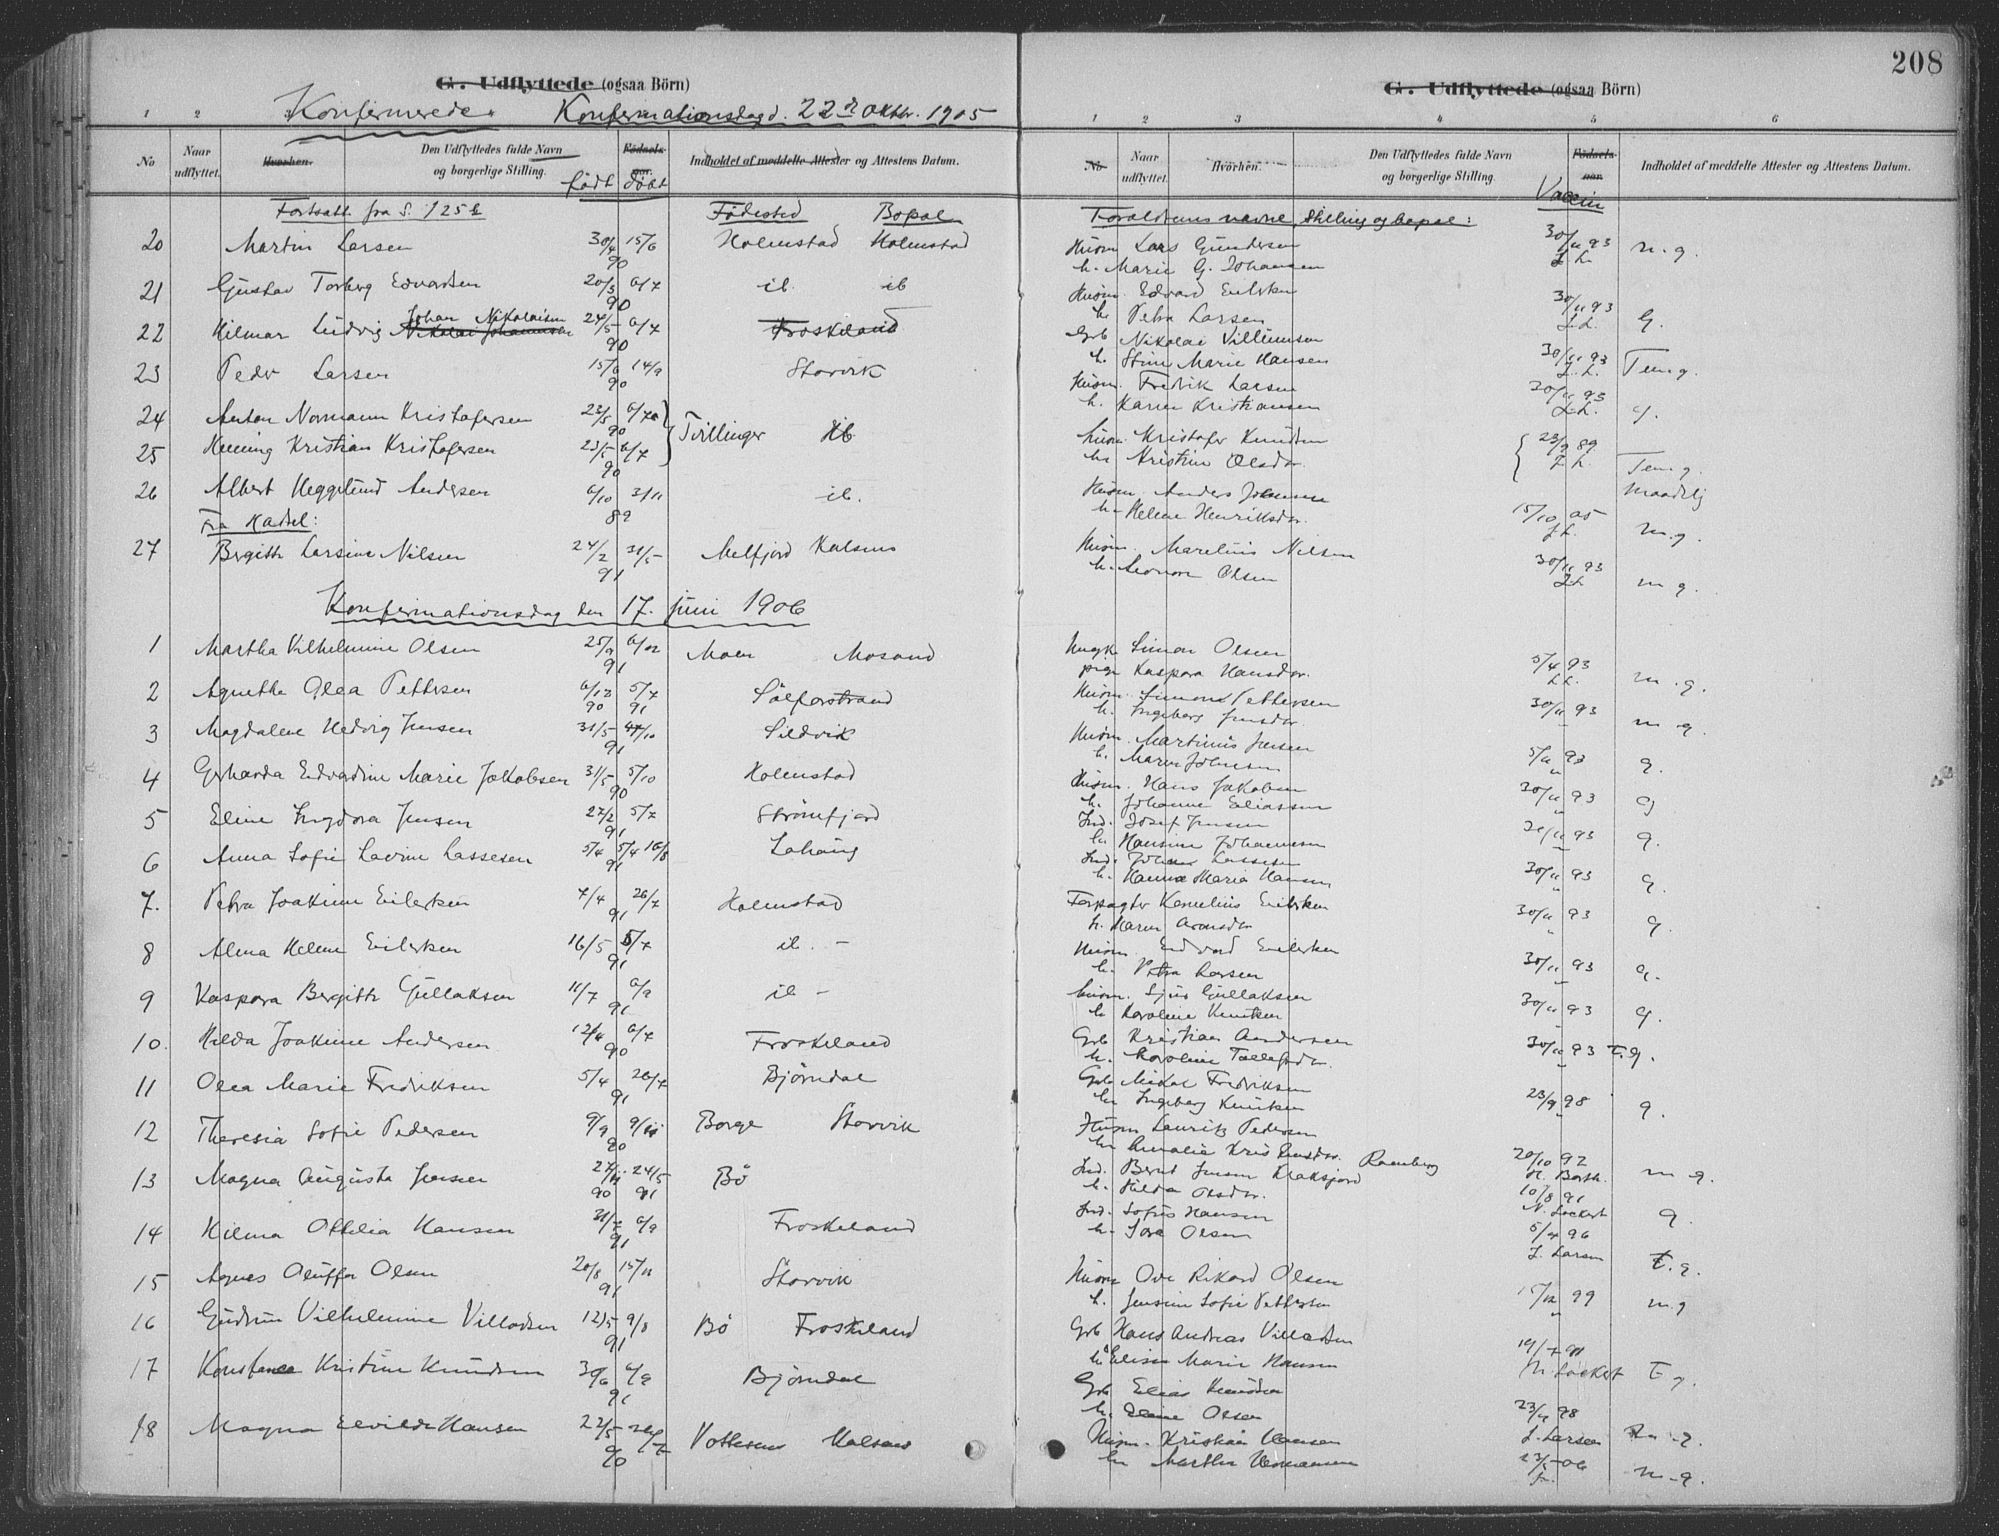 208
G. Udflyttede (ogsaa Börn)
Konfirmerede. Konfirmationsdag d. 22de oktbr. 1905
1 2
No
Naar udflyttet.
Hvorhen.
Den Udflyttedes fulde Navn og borgerlige Stilling.
Födsels-aar.
født Døbt
Indholdet af meddelte Attester og Attestens Datum.
Fortsatt fra S. 125
Fødested Bopæl
20 Martin Larsen 30/4 90 15/6 Holmstad Holmstad
21 Gustav Torberg Edvardsen 20/3 90 6/7 ib ib
22 Hilmar Ludvig Johan Nikolaisen 24/5 90 6/7 Froskeland
23 Peder Larsen 15/6 90 14/9 Storvik
24 Anton Normann Kristofersen 23/5 90 6/7 Tvillinger ib
25 Henning Kristian Kristofersen 23/5 90 6/7
26 Albert Heggelund Andersen 6/10 89 3/11 ib.
Fra Hadsel:
27 Bergitte Larsine Nilsen 24/2 91 31/5 Melfjord Kalsnes
Konfirmationsdag den 17. juni 1906
1 Martha Vilhelmine Olsen 25/9 91 Moen
2 Agnethe Olea Pettersen 6/12 90 5/7 91
3 Magdalene Hedvig Jensen 31/5 91 Sildvik
4 Gerharda Edvardine Marie Jakobsen 31/5 90 5/10 Holmstad
5 Eline Ingdora Jensen 27/2 91 5/7 Strømfjord
6 Anna Sofie Lavine Lassesen 5/4 91 16/8
7. Petra Joakime Eilertsen 7/4 91 26/7 Holmstad
8 Alma Helene Eilertsen 16/5 91 5/7 ib. -
9 Kaspara Bergitte Gullaksen 11/7 91 6/9 ib -
10. Hilda Joakime Andersen 90 6/7 Froskeland
11 Olea Marie Fredriksen 5/4 91 26/7 Bjørndal
12 Theresia Sofie Pedersen 9/9 90 9/11 Borge Storvik
13 Magna Augusta Jensen 90 24/5 91 Bø
14 Hilma Ottelia Hansen 31/7 91 6/9 Froskeland
15 Agnes Oluffa Olsen 20/8 91 15/11 Storvik
16 Gudrun Vilhelmine Villadsen 12/5 91 9/8 Bø Froskeland
17 Konstanca Kristine Knudsen 30/6 91 6/9 Bjørndal
18 Magna Elvilde Hansen 22/5 90 Kalsnes
G. Udflyttede (ogsaa Börn)
1 2 3 4 5 6
No
Naar udflyttet.
Hvorhen.
Den Udflyttedes fulde Navn og borgerlige Stilling.
Födsels-aar.
Indholdet af meddelte Attester og Attestens Datum.
Vaccin
Forældrenes navne, stilling og bopæl:
Husm Lars Gundersen 30/11 93 m.g.
h. Marie G. Johansen
Husm. Edvard Eilertsen 30/11 93 G.
h. Petra Larsen
Grb Nikolai Villumsen 30/11 93 Tem g.
h. Stine Marie Hansen
Husm. Fredrik Larsen 30/11 93 g.
h. Karen Kristiansen
husm. Kristofer Knudsen 23/9 89 Tem g.
h. Kristine Olsdr.
maadelig
Husm. Anders Johansen 15/10 05 m.g.
h. Helene Henriksdr.
Husm. Marelius Nilsen 30/11 93 m g.
h. Leonore Olsen
Ungk Simon Olsen 5/4 93 m.g.
pige Kaspara Hansdr.
Husm. Simon Pettersen 30/11 93 m g.
h. Ingeberg Jensdr.
Husm. Martinus Jensen 5/11 93 g.
h. Maren Johnsen
Husm. Hans Jakobsen 30/11 93 g
h. Johanna Eliassen
Ind. Josef Jensen 30/11 93 g.
h. Hansine Johannesen
Ind. Johan Lassesen 30/11 93 g.
h. Hanna Maria Hansen
Forpagter Kornelius Eilertsen 30/11 93 g.
h. Maren Aronsdr
Husm. Edvard Eilertsen 30/11 93 g.
h. Petra Larsen
husm. Sjur Gullaksen 30/11 93 g.
h. Karoline Knutsen
Grb Kristian Andersen 30/11 93 T.g.
h. Karoline Tollefsdr.
Grb Mikal Fredriksen 23/9 98 g.
h. Ingeberg Knutsen
Husm Lauritz Pedersen 20/10 92 m g.
h. Amalie
Ind. Bernt Jensen Klaksjord Ramberg 10/8 91 g.
h. Hilda Olsdr. N. Lockert
Ind. Sofus Hansen 5/9 96 T.g.
h. Tora Olsen L. Larsen
Husm Ove Rikard Olsen 15/12 99 m g
h. Jensine Sofie Pettersen
Grb Hans Andreas Villadsen 19/7 91 T g.
h. Elisa Marie Hansen N. Lockert
Grb Elias Knudsen 23/9 98
h. Eline Olsen L. Larsen
Husm. Kristian Hansen 23/5 06 m-g.
h. Marthe Hermansen